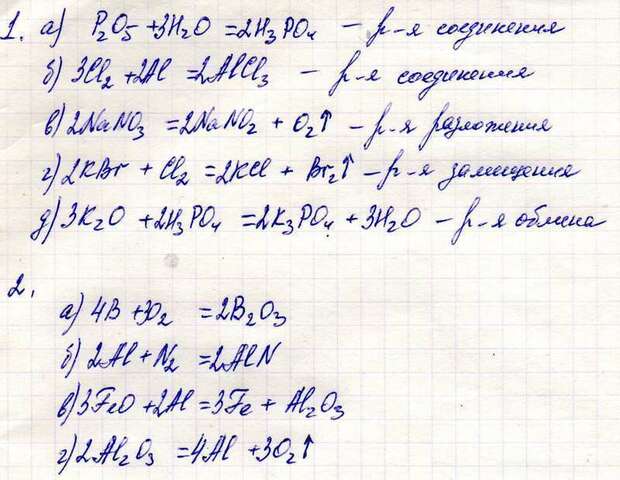 1. а) P₂O₅ + 3H₂O = 2H₃PO₄ – р-я соединения
б) 3Cl₂ + 2Al = 2AlCl₃ – р-я соединения
в) 2NaNO₃ = 2NaNO₂ + O₂↑ – р-я разложения
г) 2KBr + Cl₂ = 2KCl + Br₂↑ – р-я замещения
д) 3K₂O + 2H₃PO₄ = 2K₃PO₄ + 3H₂O – р-я обмена
2.
а) 4B + 3O₂ = 2B₂O₃
б) 2Al + N₂ = 2AlN
в) 3FeO + 2Al = 3Fe + Al₂O₃
г) 2Al₂O₃ = 4Al + 3O₂↑